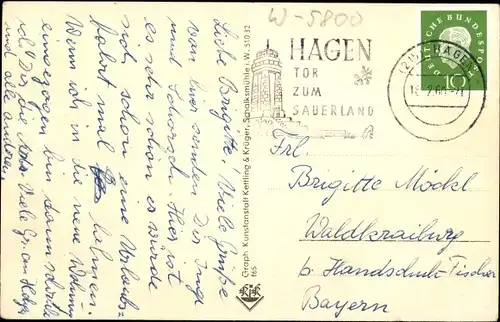 W-5800
Liebe Brigitte! Viele Grüße
von hier senden Dir Inge
und Schorsch. Hier ist
es sehr schön es würde
sich schon eine Urlaubs-
fahrt mal lohnen.
Wenn ich in die neue Wohnung
eingezogen bin dann schreibe
ich Dir die Adr. Viele Gr. an
und alle andren
Graph. Kunstanstalt Kettling & Krüger, Schalksmühle i. W. 51032
165
HAGEN
TOR
ZUM
SAUERLAND
HAGEN
DEUTSCHE BUNDESPOST
10
Frl.
Brigitte Möckl
Waldkraiburg
b. Handschuh-Fischer
Bayern